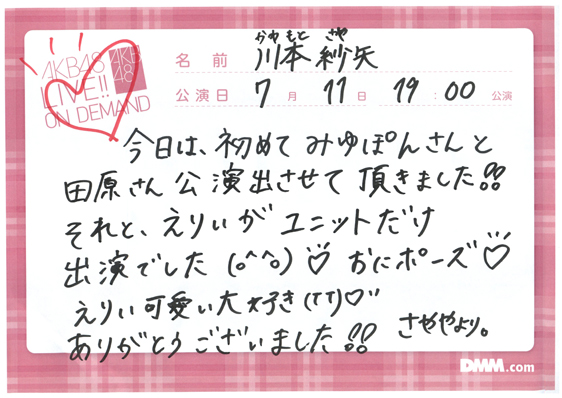 AKB48
LIVE!!
ON DEMAND
AKB
48
かわもと さや
名前 川本 紗矢
公演日 7月 11日 19:00 公演
今日は、初めて みゆぽんさんと
田原さん 公演出させて 頂きました!!
それと、えりぃが ユニットだけ
出演でした (o^^o)♡ おにポーズ♡
えりぃ可愛い大好き(TT)♡
ありがとうございました!! さややより。
DMM.com